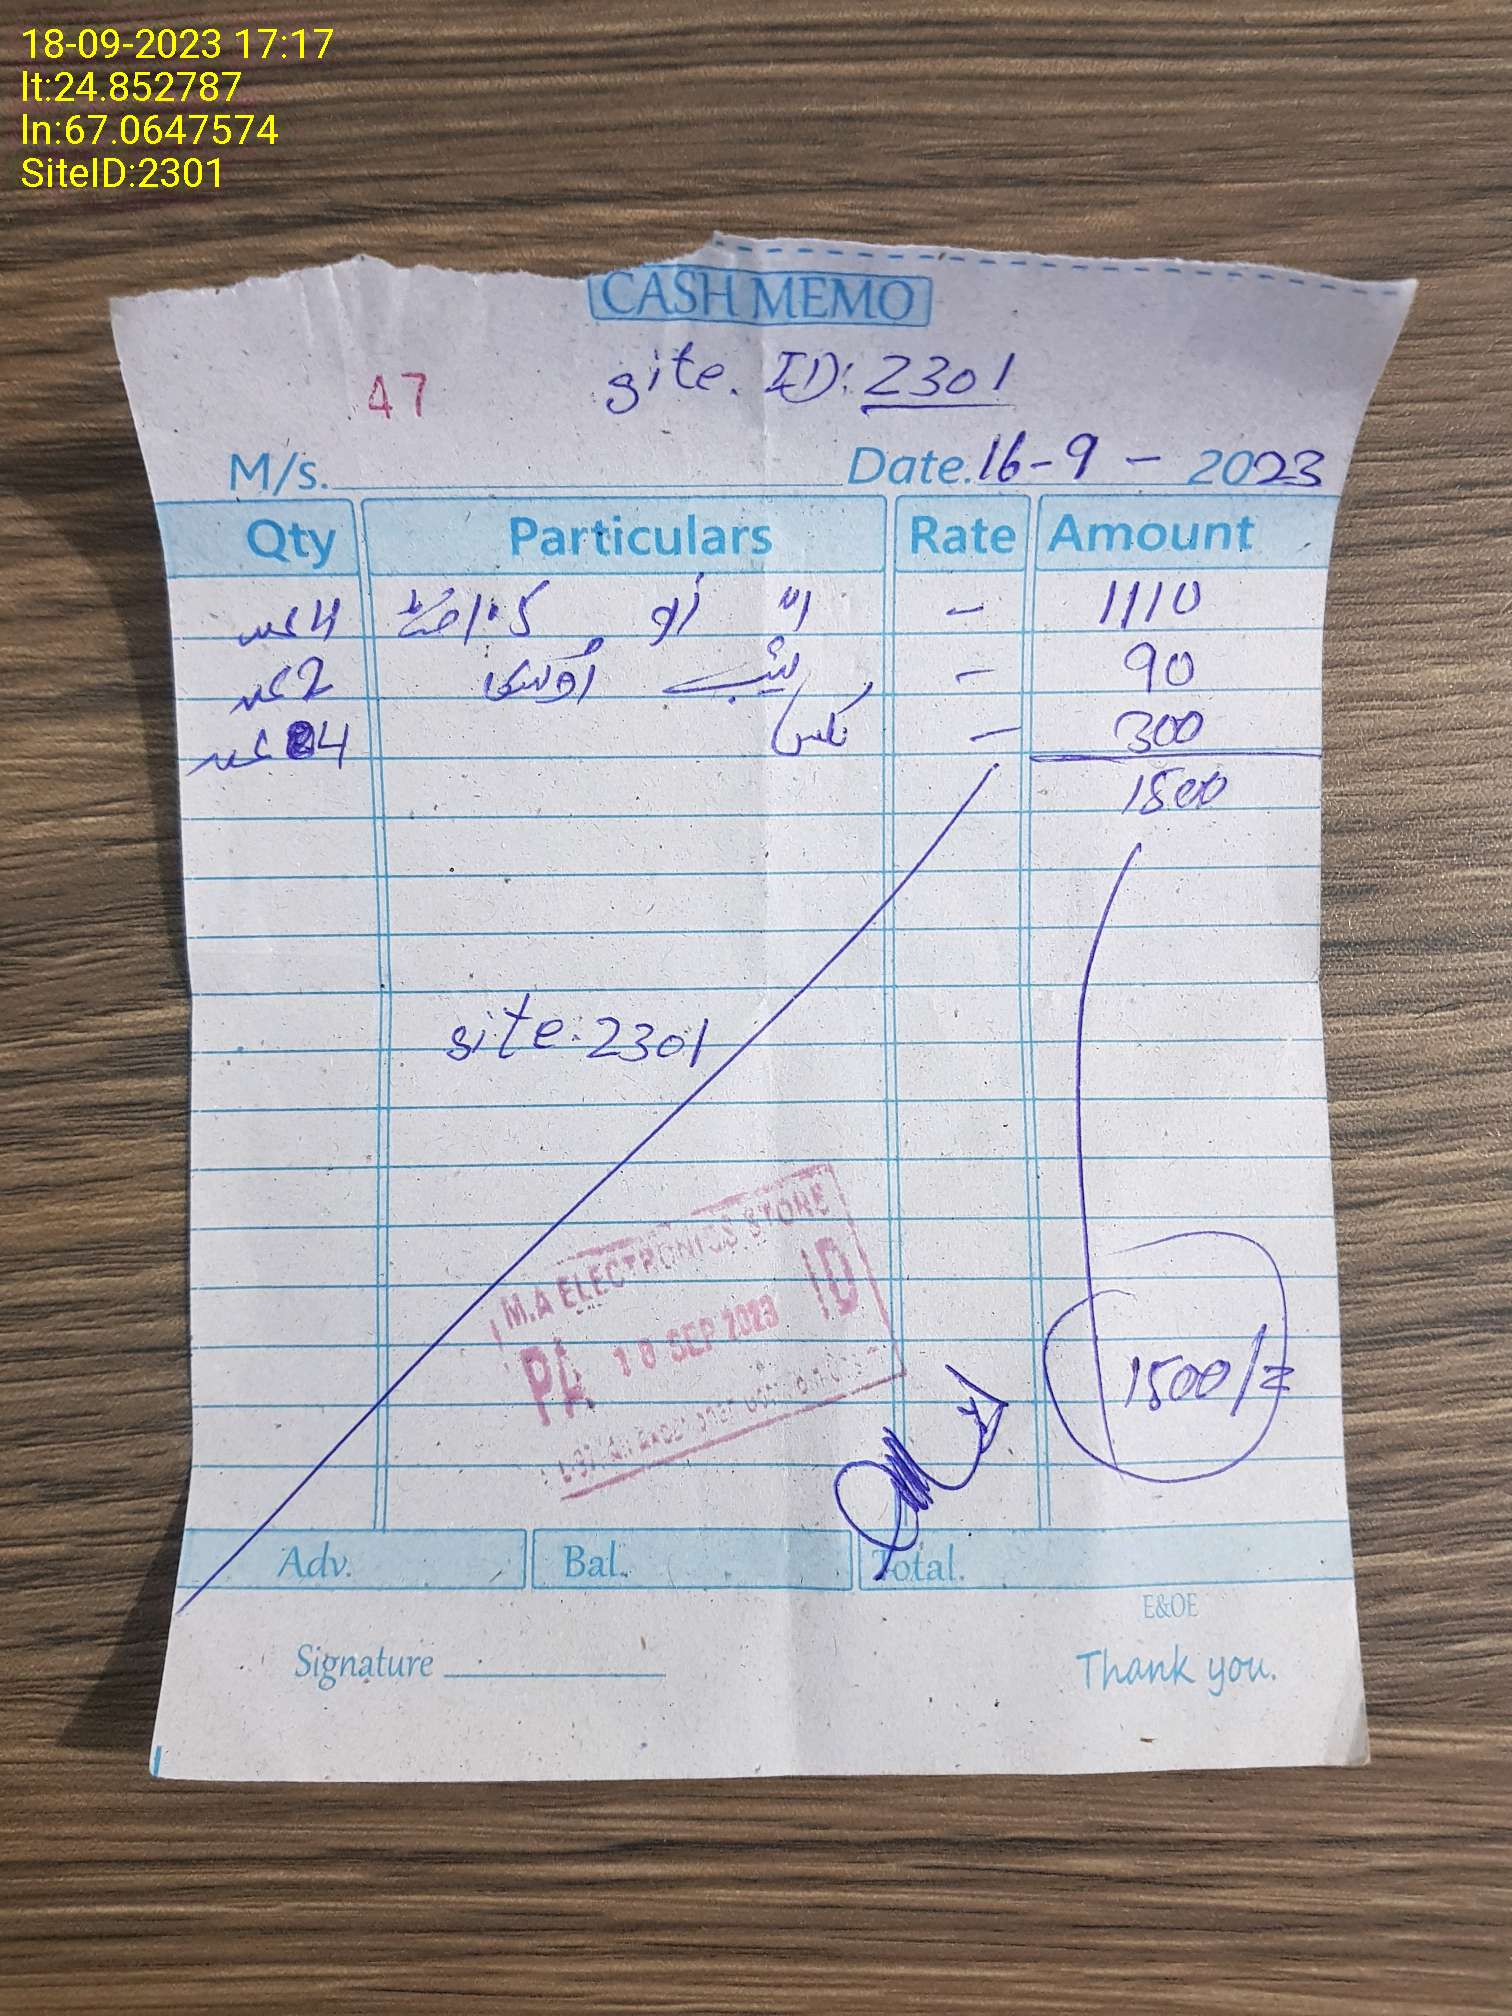 18-09-2023 17:17
lt:24.852787
ln:67.0647574
SiteID:2301
CASH MEMO
47 site. ID: 2301
M/s. Date. 16-9-2023
Qty Particulars Rate Amount
4 عدد - 1110
2 عدد ٹیپ - 90
4 عدد - 300
1500
site. 2301
M.A ELECTRONICS STORE
PAID
SEP 2023
1500/=
Adv. Bal. Total.
E&OE
Signature Thank you.